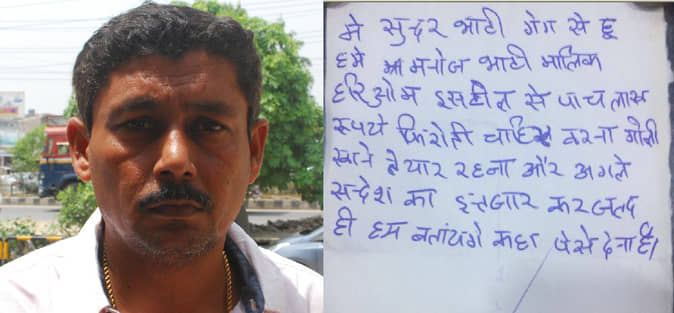 मे सुदर भाटी गेग से हू
हमे मनोज भाटी मालिक
हरिओम इसटील से पाच लाख
रूपये फिरोती चाहिए वरना गोली
खाने तेयार रहना और अगले
सन्देश का इन्तजार कर जल्द
ही हम बतायगे कहा पेसे देना है।